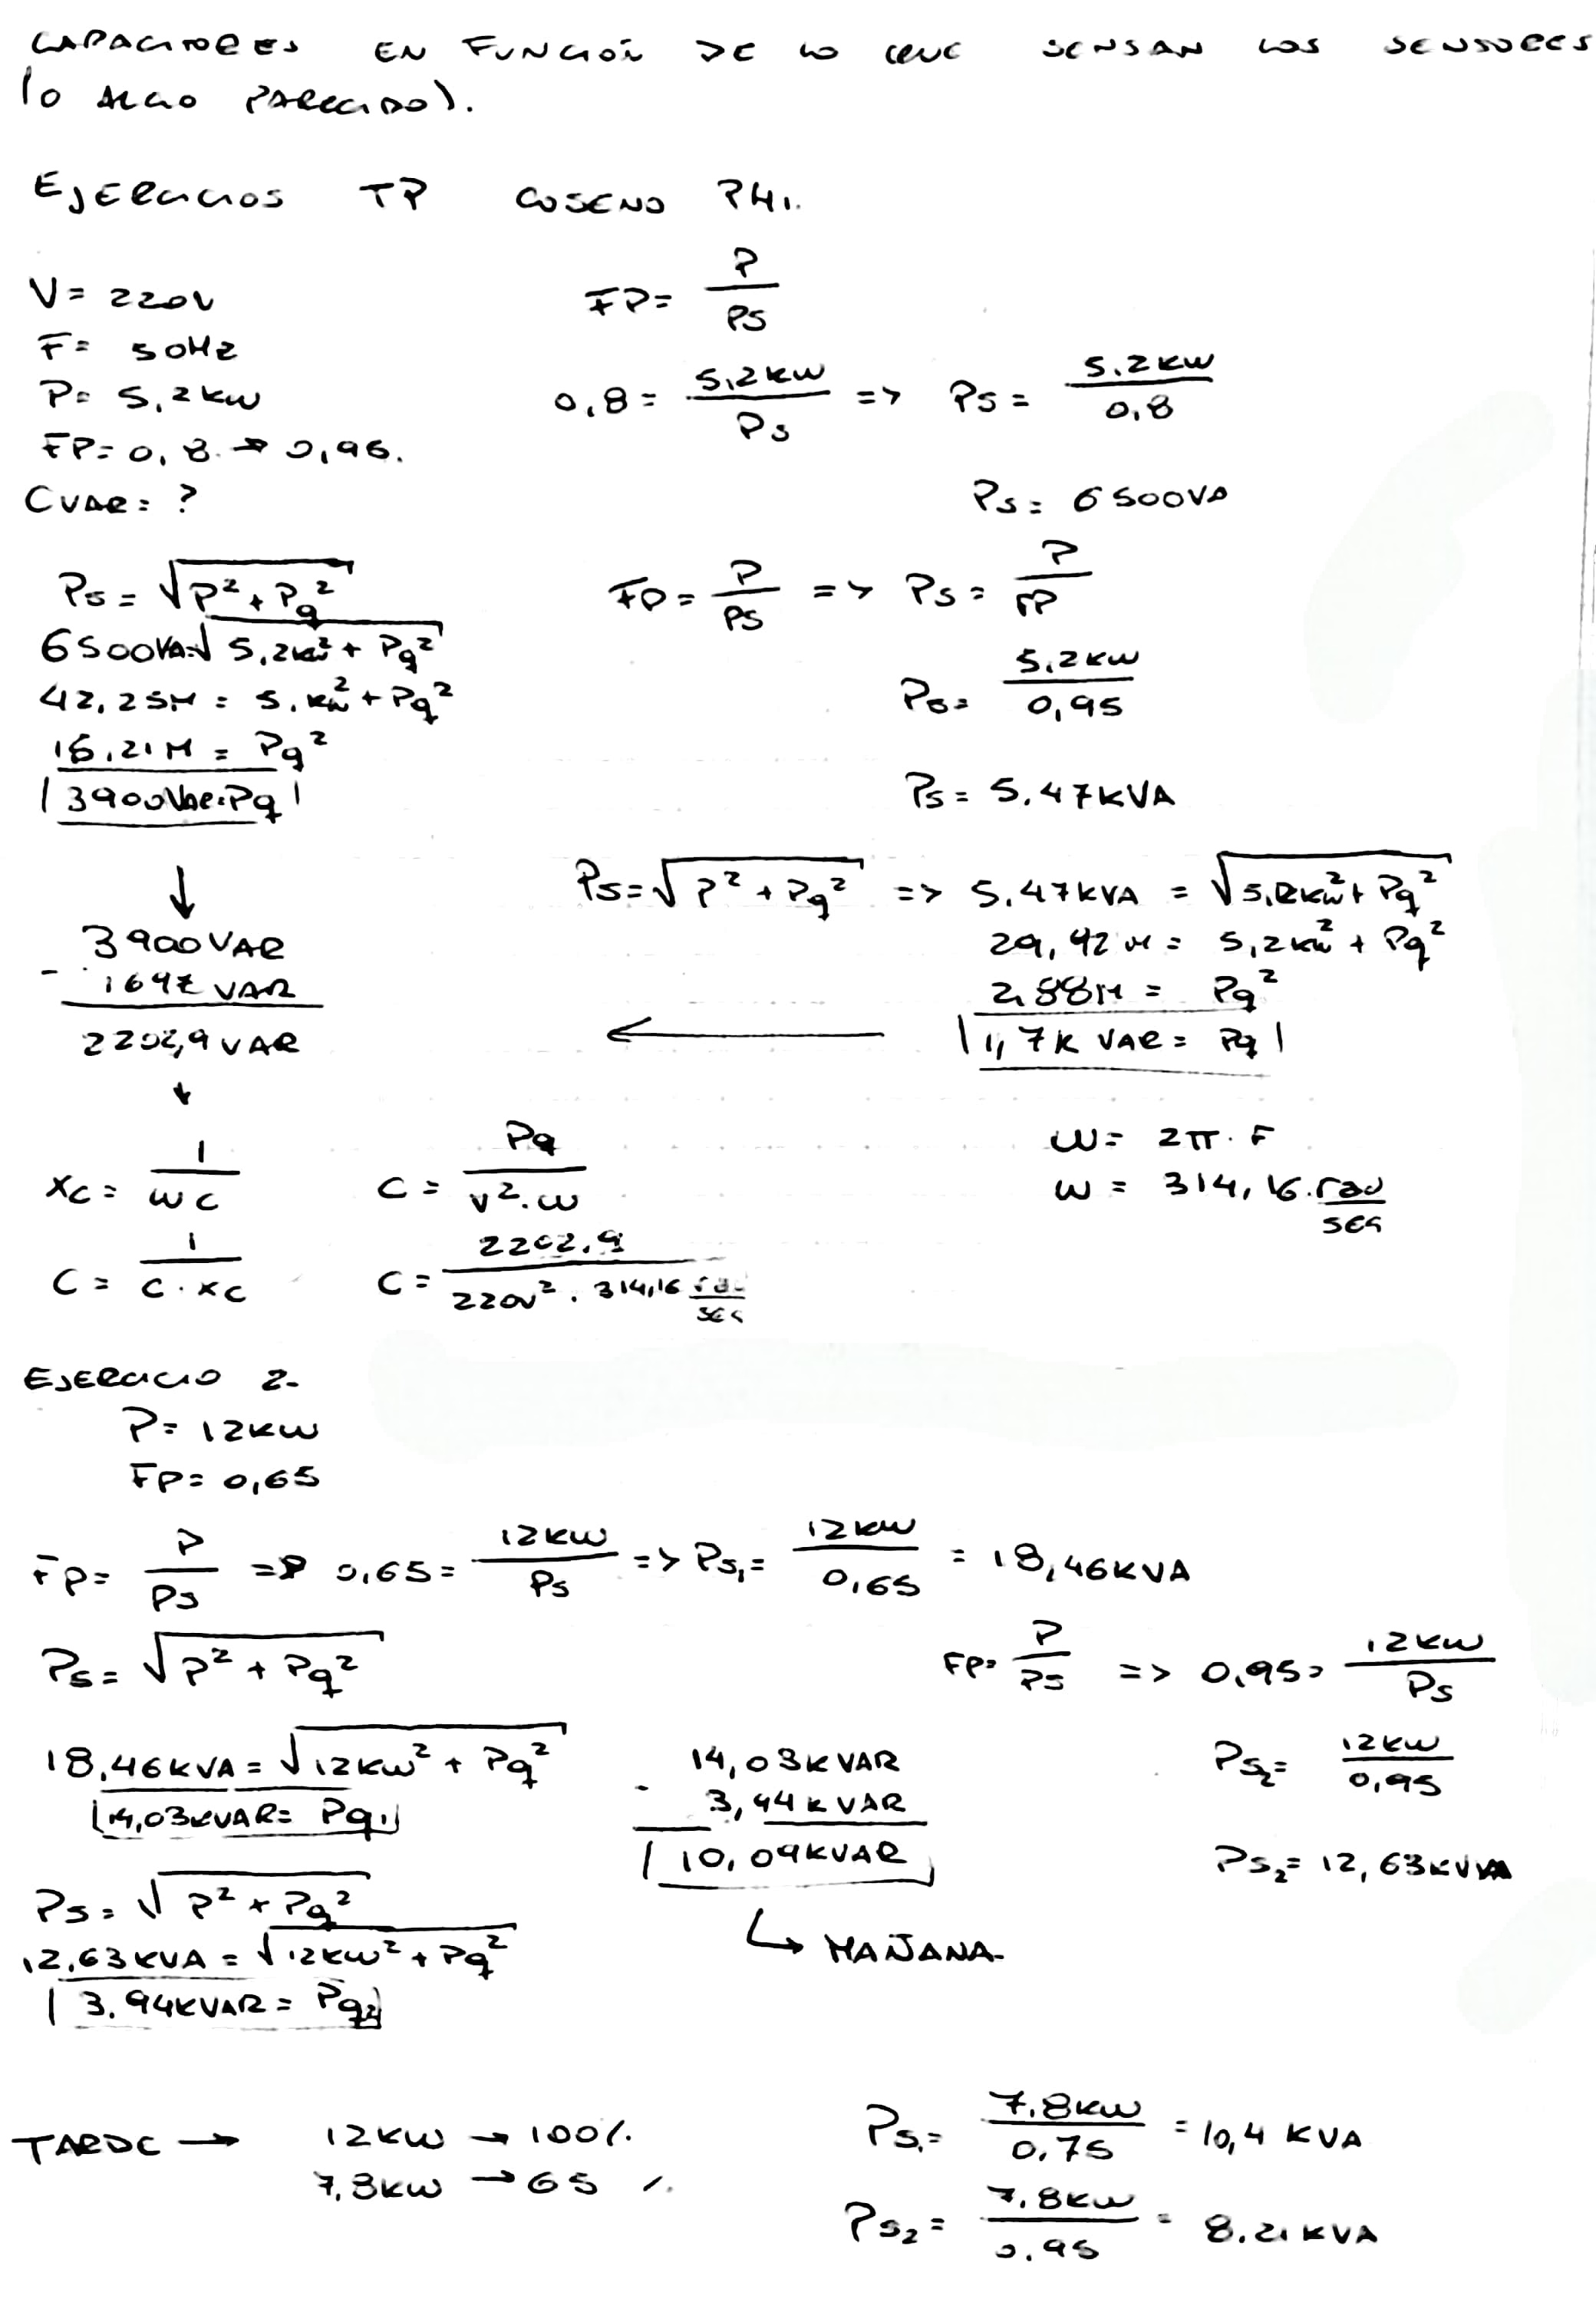 CAPACITORES EN FUNCIÓN DE LO QUE SENSAN LOS SENSORES
(O ALGO PARECIDO).
EJERCICIOS TP COSENO PHI.
V= 220V
F= 50HZ
P= 5,2KW
FP= 0,8 → 0,95.
CVAR= ?
FP= P/PS
0,8= 5,2KW/PS => PS= 5.2KW/0,8
PS= 6500VA
PS= √P²+Pq²
6500VA=√5,2KW²+Pq²
42,25M= 5.KW²+Pq²
15.21M= Pq²
3900VAR=Pq
FP= P/PS => PS= P/FP
PS= 5.2KW/0,95
PS= 5.47KVA
PS=√P²+Pq² => 5.47KVA = √5,2KW²+Pq²
29,92M= 5,2KW²+Pq²
2,88M= Pq²
1,7K VAR= Pq
↓
3900VAR
- 1697 VAR
2202,9VAR
↓
XC= 1/WC
C= 1/C.XC
C= Pq/V².W
C= 2202.9/220V².314,16 rad/SEG
W= 2π.F
W= 314,16.rad/SEG
EJERCICIO 2-
P= 12KW
FP= 0,65
FP= P/PS => 0,65= 12KW/PS => PS₁= 12KW/0,65 = 18,46KVA
PS= √P²+Pq²
18,46KVA=√12KW²+Pq²
14,03KVAR= Pq₁
PS= √P²+Pq²
12,63KVA=√12KW²+Pq²
3.94KVAR= Pq₂
14,03KVAR
- 3,94KVAR
10,09KVAR
↳ MAÑANA-
FP= P/PS => 0,95= 12KW/PS
PS₂= 12KW/0,95
PS₂= 12,63KVA
TARDE → 12KW → 100%.
7,8KW → 65 %.
PS₁= 7.8KW/0.75 = 10,4 KVA
PS₂= 7.8KW/0.95 = 8.21KVA